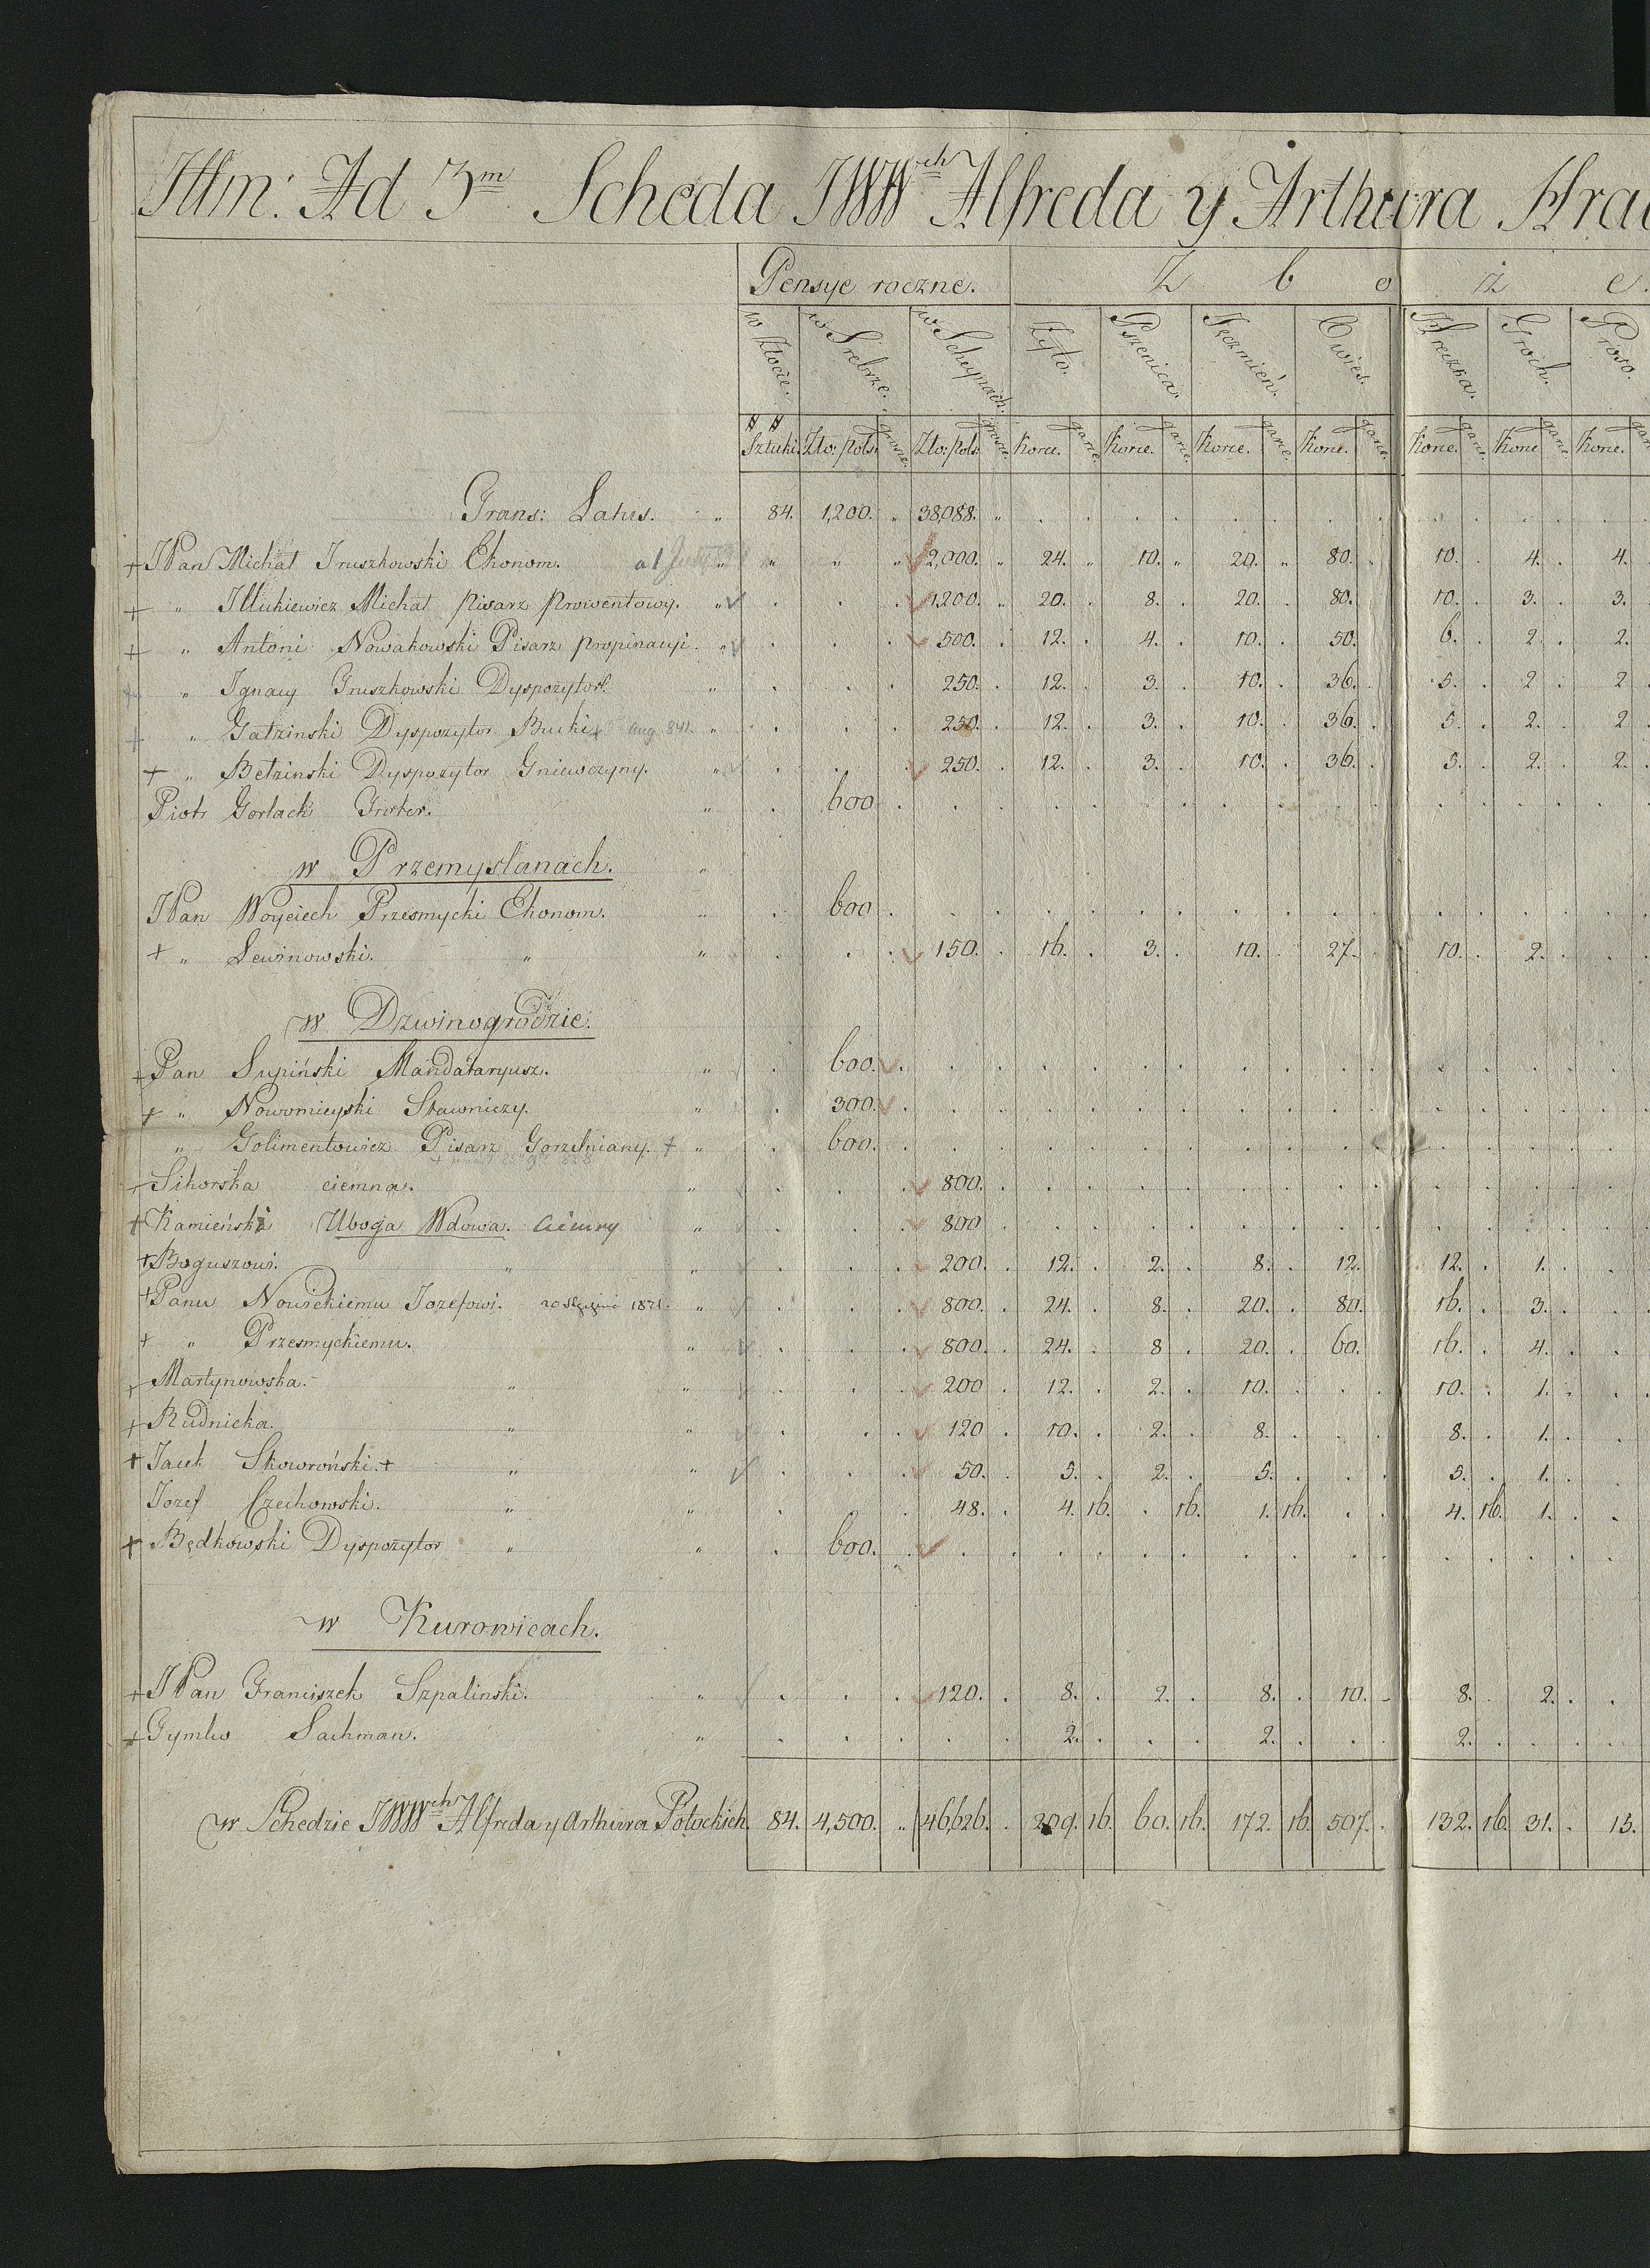 Ad 3m Scheda JWWch Alfreda y Arthura Hra
Pensye roczne. Z b o ż e.
w Złocie. w Srebrze. w Scheynach. Żyto. Pszenica. Jęczmień. Owies. Hreczka. Groch. Proso.
Sztuki. Zło: pols: grosze. Zło: pols: grosze. Korce. garce. Korce. garce. Korce. garce. Korce. garce. Korce. garce. Korce. garce. Korce.
Trans: Latus. 84. 1,200. 38,088.
+ JPan Michał Truszkowski Ekonom. 2,000. 24. 10. 20. 80. 10. 4. 4.
+ " Michał Pisarz prowentowy. 1,200. 20. 8. 20. 80. 10. 3. 3.
+ " Antoni Nowakowski Pisarz propinacyi. 500. 12. 4. 10. 50. 6. 2. 2.
+ " Ignacy Gruszkowski Dyspozytor. 250. 12. 3. 10. 36. 5. 2. 2
+ " Gatzinski Dyspozytor Aug. 841. 250. 12. 3. 10. 36. 5. 2. 2
+ " Betzinski Dyspozytor Gniewczyny. 250. 12. 3. 10. 36. 5. 2. 2.
Piotr Gorlach 600
w Przemyslanach.
JPan Woyciech Przesmycki Ekonom. 600
+ " Lewinowski. " 150. 16. 3. 10. 27. 10. 2.
w Dzwinogrodzie.
+ Pan Supiński Mandataryusz. 600.
+ " Nowomieyski Stawniczy. 300.
" Golimentowicz Pisarz Gorzelniany. + 600.
+ Sikorska ciemna. 800.
+ Kamieński Uboga Wdowa. 800
+ Boguszowi. " 200. 12. 2. 8. 12. 12. 1.
+ Panu Nowickiemu Jozefowi. 800. 24. 8. 20. 80. 16. 3.
+ " Przesmyckiemu. 800. 24. 8 20. 60. 16. 4.
+ Martynowska. " 200 12. 2. 10. 10. 1.
+ Rudnicka. " 120 10. 2. 8. 8. 1.
+ Jacek Skowroński. + " 50. 5. 2. 5. 5. 1.
Jozef Czechowski. " 48. 4. 16. . 16. 1. 16. 4. 16. 1.
+ Będkowski Dyspozytor " 600.
w Kurowicach.
+ JPan Franciszek Szpalinski. 120. 8. 2. 8. 10. 8. 2.
+ Lachman. 2. 2. 2.
w Schedzie JWWch Alfreda y Arthura Potockich 84. 4,500. " 46,626. 209. 16. 60. 16. 172. 16. 507. 132. 16. 31. 13.